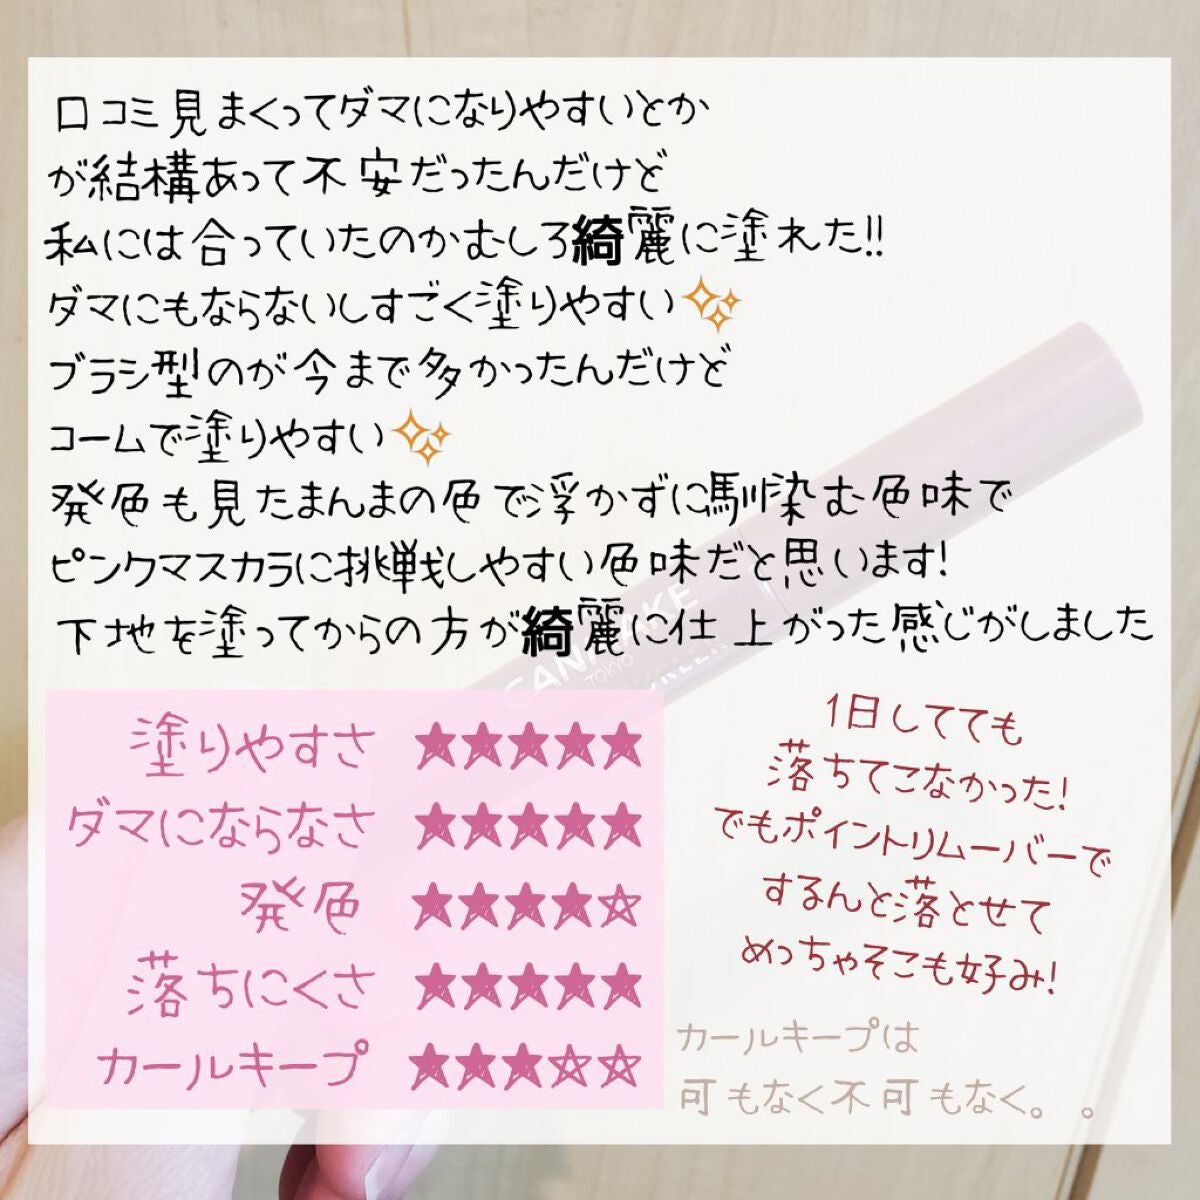 口コミ見まくってダマになりやすいとか
が結構あって不安だったんだけど
私には合っていたのかむしろ綺麗に塗れた!!
ダマにもならないしすごく塗りやすい✨
ブラシ型のが今まで多かったんだけど
コームで塗りやすい✨
発色も見たまんまの色で浮かずに馴染む色味で
ピンクマスカラに挑戦しやすい色味だと思います!
下地を塗ってからの方が綺麗に仕上がった感じがしました
CANMAKE
TOKYO
塗りやすさ ★★★★★
ダマにならなさ ★★★★★
発色 ★★★★☆
落ちにくさ ★★★★★
カールキープ ★★★☆☆
1日してても
落ちてこなかった!
でもポイントリムーバーで
するんと落とせて
めっちゃそこも好み!
カールキープは
可もなく不可もなく。。